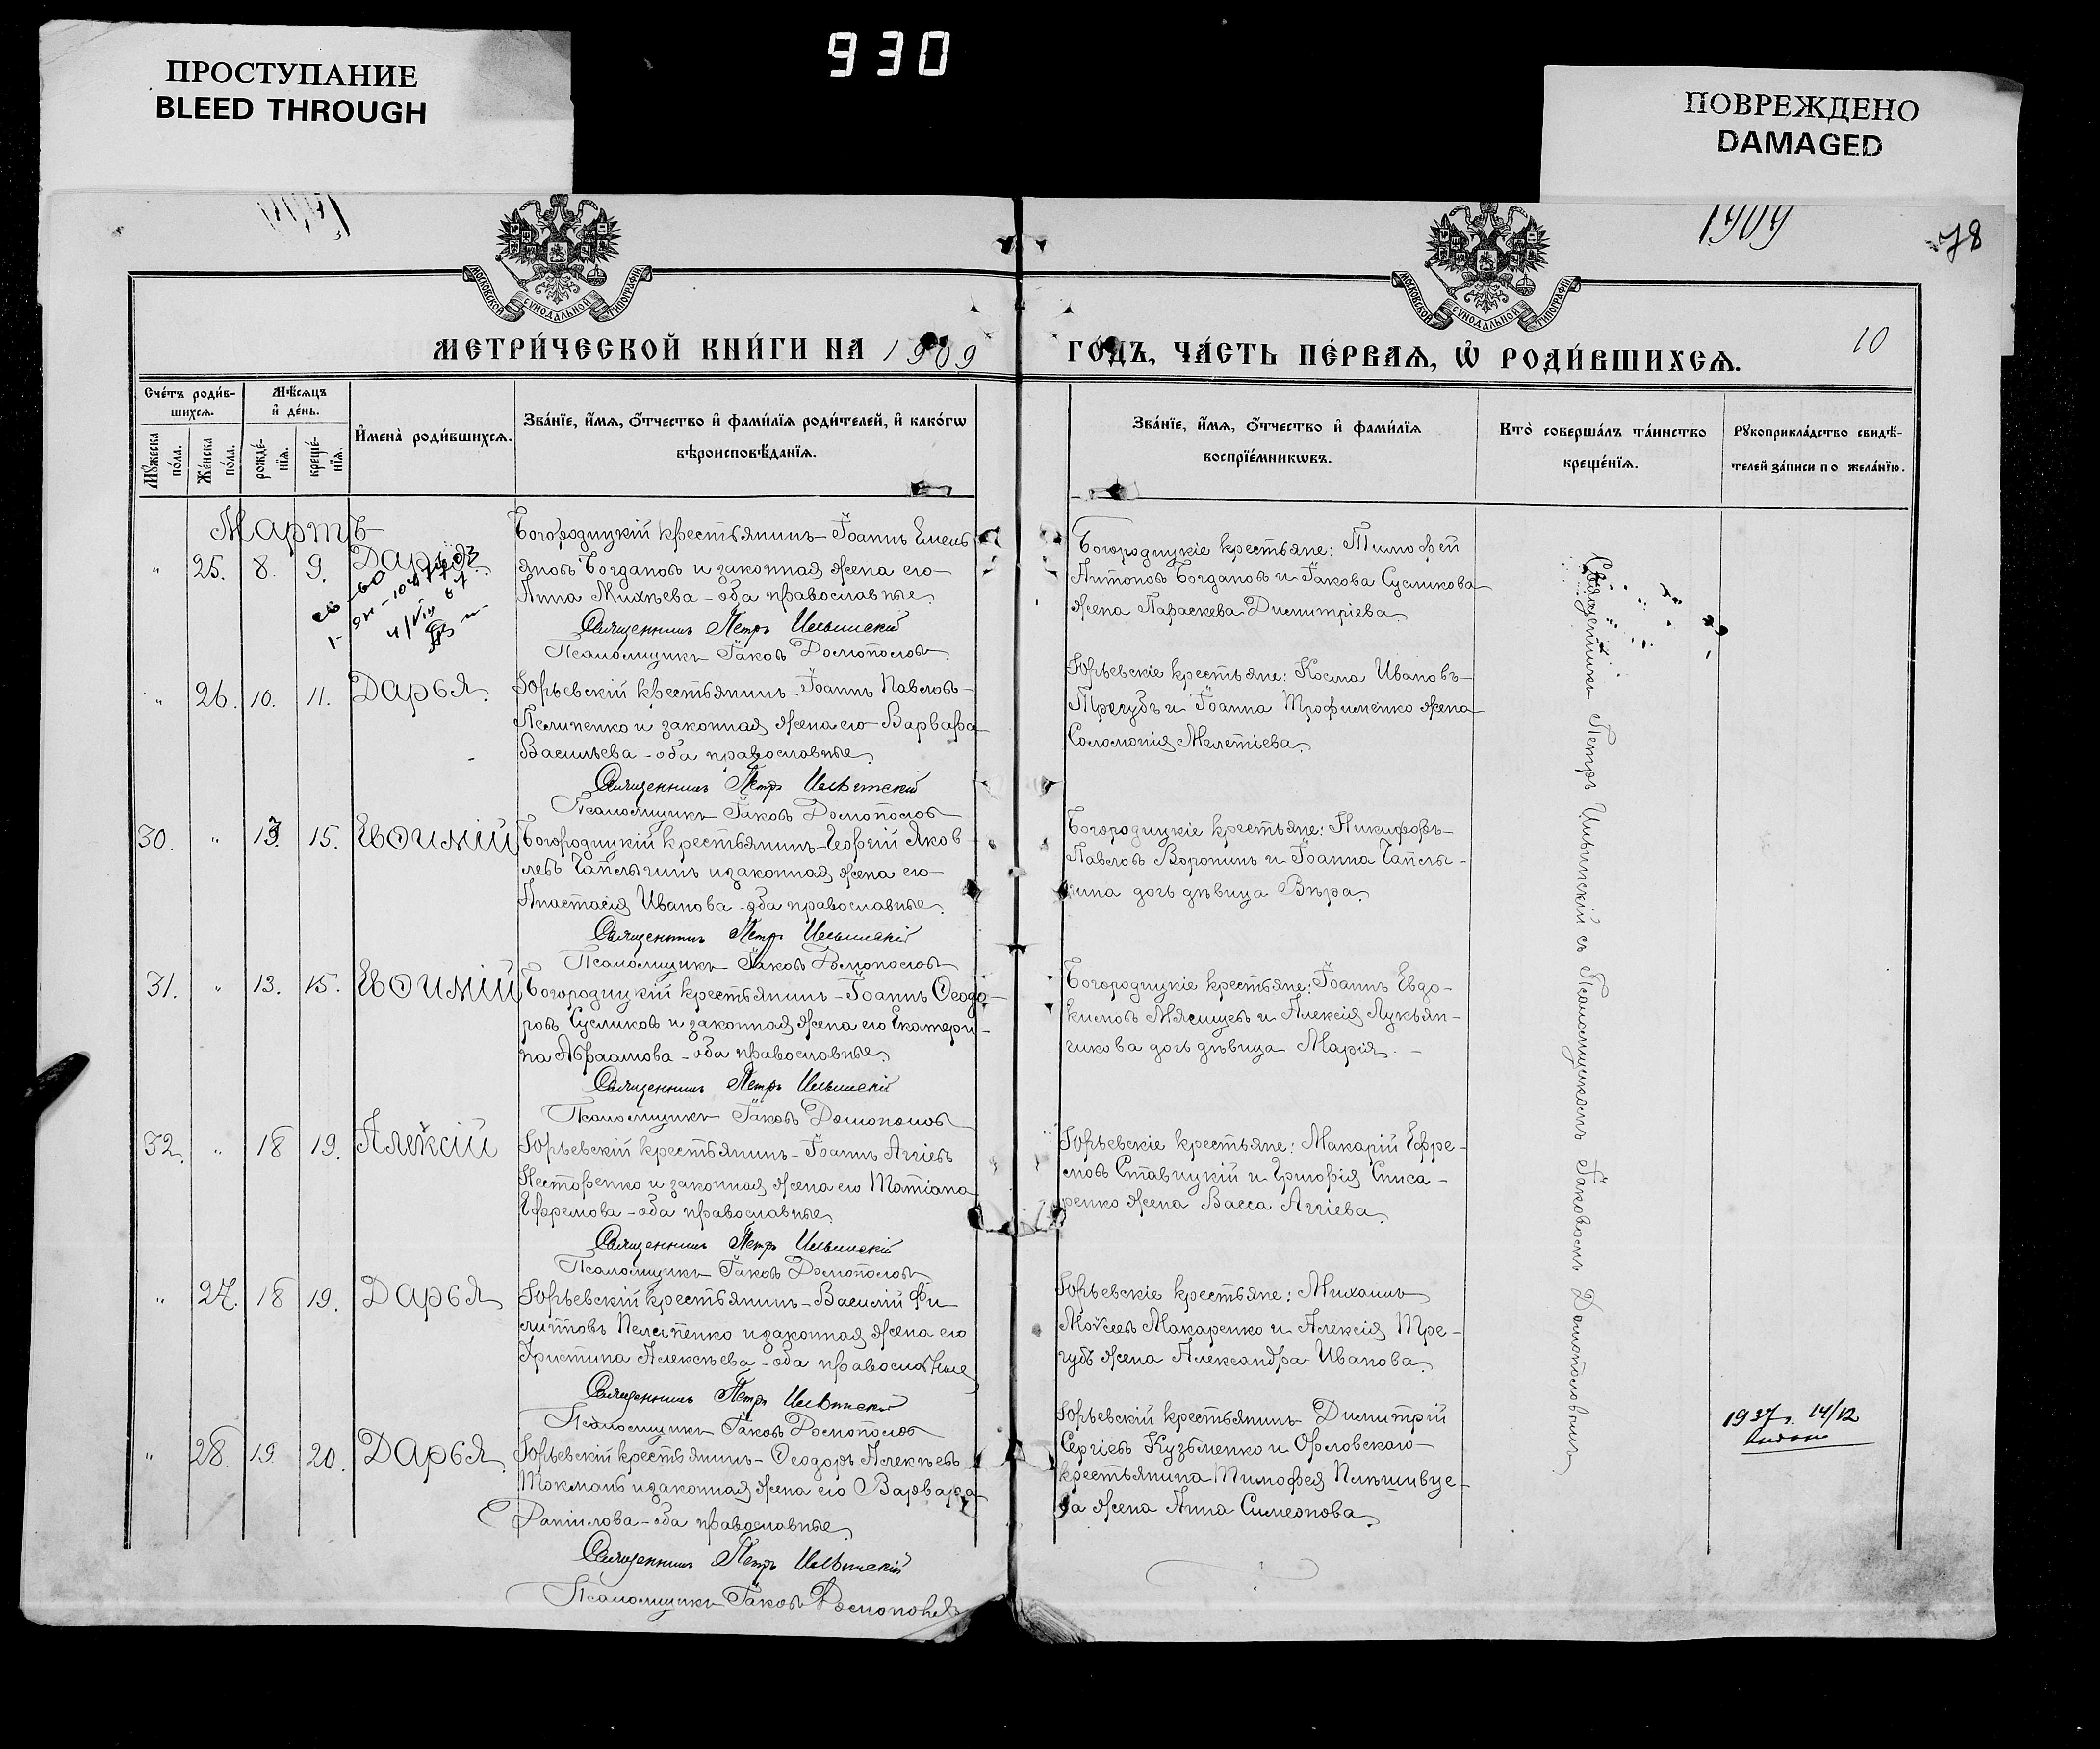 930
ПРОСТУПАНИЕ
BLEED THROUGH
ПОВРЕЖДЕНО
DAMAGED
1909
78
МОСКОВСКОЙ СѴНОДАЛЬНОЙ ТИПОГРАФІИ
МОСКОВСКОЙ СѴНОДАЛЬНОЙ ТИПОГРАФІИ
МЕТРИ́ЧЕСКОЙ КНИ́ГИ НА 1909
ГО́ДЪ, ЧА́СТЬ ПЕ́РВАѦ, Ѡ҆ РОДИ́ВШИХСѦ.
10
Сче́тъ роди́в-
шихсѧ.
Мѣ́сѧцъ
и҆ де́нь.
Мꙋ́жеска
по́ла.
Же́нска
по́ла.
рожде́-
нїѧ.
креще́-
нїѧ.
И҆мена̀ роди́вшихсѧ.
Зва́нїе, и҆́мѧ, ѻ҆́тчество и҆ фами́лїѧ роди́телей, и҆ како́гѡ
вѣроисповѣ́данїѧ.
Зва́нїе, и҆́мѧ, ѻ҆́тчество и҆ фами́лїѧ
воспрїе́мникѡвъ.
Кто̀ соверша́лъ та́инство
креще́нїѧ.
Рꙋкоприкла́дство свидѣ́-
телей за́писи по жела́нїю.
Мартъ
" 25. 8. 9. Дарья
Богородицкій крестьянинъ - Іоаннъ Емель
яновъ Богдановъ и законная жена его -
Анна Михеева - оба православные.
Священникъ Петръ Ильинскій
Псаломщикъ Іаковъ Домополовъ
Богородицкіе крестьяне: Тимофей
Антоновъ Богдановъ и Іакова Сусликова
жена Параскева Димитріева.
" 26. 10. 11. Дарья.
Юрьевскій крестьянинъ - Іоаннъ Павловъ -
Пелипенко и законная жена его Варвара
Васильева - оба православные.
Священникъ Петръ Ильинскій
Псаломщикъ Іаковъ Домополовъ
Юрьевскіе крестьяне: Косма Ивановъ -
Трегубъ и Іоанна Трофименко жена
Соломонія Мелетіева.
30. " 13. 15. Евѳимій
Богородицкій крестьянинъ - Георгій Яков
левъ Чаплыгинъ и законная жена его -
Анастасія Иванова - оба православные.
Священникъ Петръ Ильинскій
Псаломщикъ Іаковъ Домополовъ
Богородицкіе крестьяне: Никифоръ -
Павловъ Воронинъ и Іоанна Чаплы -
гина дочь дѣвица Вѣра.
31. " 13. 15. Евѳимій
Богородицкій крестьянинъ - Іоаннъ Ѳеодо -
ровъ Сусликовъ и законная жена его Екатери -
на Авраамова - оба православные.
Священникъ Петръ Ильинскій
Псаломщикъ Іаковъ Домополовъ
Богородицкіе крестьяне: Іоаннъ Евдо -
кимовъ Мясищевъ и Алексія Лукьян -
чикова дочь дѣвица Марія. -
32. " 18 19. Алексій
Юрьевскій крестьянинъ - Іоаннъ Аггіевъ
Несторенко и законная жена его Татіана
Ефремова - оба православные.
Священникъ Петръ Ильинскій
Псаломщикъ Іаковъ Домополовъ
Юрьевскіе крестьяне: Макарій Ефре -
мовъ Ставицкій и Григорія Списа -
ренко жена Васса Аггіева.
" 27. 18 19. Дарья
Юрьевскій крестьянинъ - Василій Фи
липповъ Пелепенко и законная жена его
Христина Алексѣева - оба православные
Священникъ Петръ Ильинскій
Псаломщикъ Іаковъ Домополовъ
Юрьевскіе крестьяне: Михаилъ
Моѵсеевъ Макаренко и Алексія Тре -
губъ жена Александра Иванова.
" 28. 19. 20. Дарья
Юрьевскій крестьянинъ - Ѳеодоръ Алексѣевъ
Токмань и законная жена его Варвара
Даніилова - оба православные.
Священникъ Петръ Ильинскій
Псаломщикъ Іаковъ Домополовъ
Юрьевскій крестьянинъ Димитрій
Сергіевъ Кузьменко и Орловскаго -
крестьянина Тимофея Плѣшивце -
ва жена Анна Симеонова.
Священникъ Петръ Ильинскій съ Псаломщикомъ Іаковомъ Домополовымъ
1937 г. 14/12